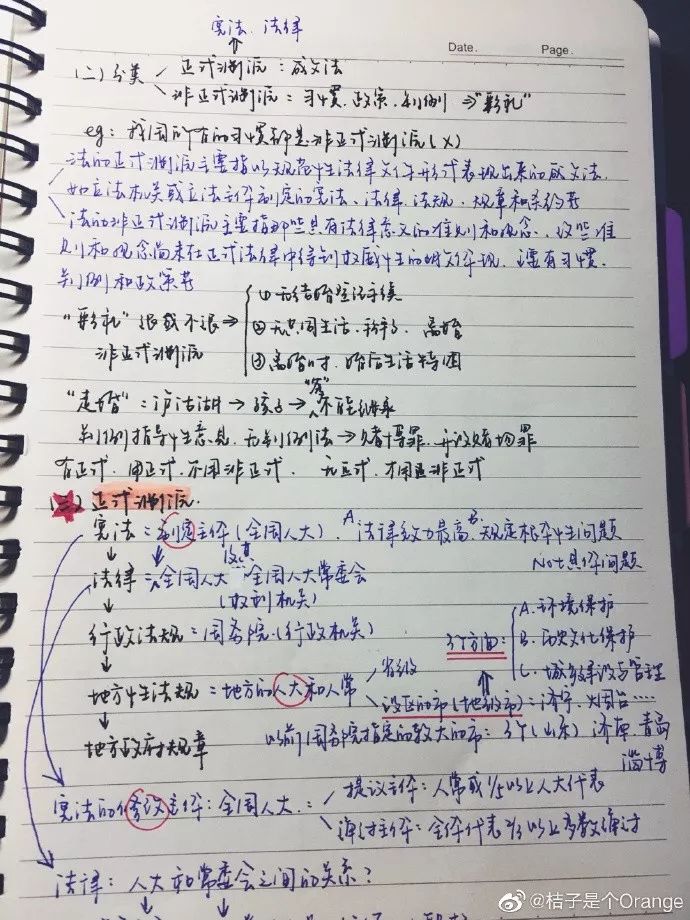 宪法、法律
Date. Page.
(二)分类 正式渊源:成文法
非正式渊源:习惯、政策、判例 ⇒"彩礼"
eg:我国所有的习惯都是非正式渊源(X)
法的正式渊源主要指以规范性法律文件形式表现出来的成文法,
如立法机关或立法主体制定的宪法、法律、法规、规章和条约等
法的非正式渊源主要指那些具有法律意义的准则和观念,这些准
则和观念尚未在正式法律中得到权威性的明文体现,主要有习惯、
判例和政策等
①无结婚登记手续
"彩礼"退或不退⇒ ②无共同生活、
离婚
非正式渊源
③离婚时,婚后生活特困
"走婚":泸沽湖→孩子→不能继承
判例指导性意见,无判例法→赌博罪,开设赌场罪
有正式,用正式,不用非正式,无正式,才用非正式
(三)正式渊源.
宪法:制定主体(全国人大).A法律效力最高 B规定根本性问题
Not具体问题
法律:全国人大 全国人大常委会
(权利机关)
A.环境保护
行政法规:国务院(行政机关)
3个方面: B.历史文化保护
C.城乡建设与管理
省级
地方性法规:地方的人大和人常
设区的市(地级市):济宁、烟台……
地方政府规章
以前国务院指定的较大的市:3个(山东)济南、青岛
淄博
宪法的修改主体:全国人大:
提议主体:人常或1/5以上人大代表
通过主体:全体代表2/3以上多数通过
法律:人大和常委会之间的关系?
@桔子是个Orange